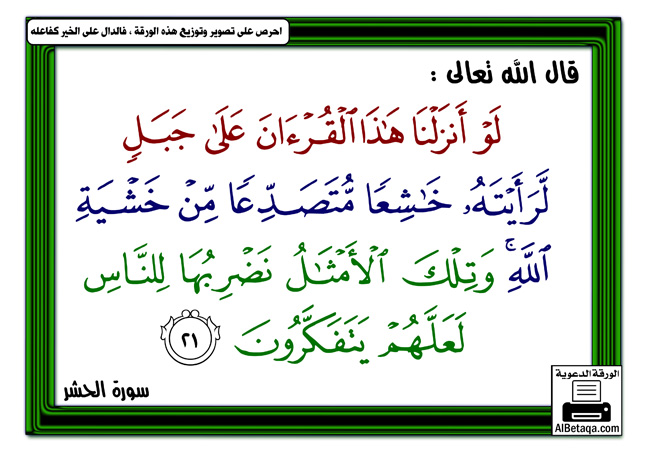 احرص على تصوير وتوزيع هذه الورقة ، فالدال على الخير كفاعله
قال الله تعالى :
لَوْ أَنزَلْنَا هَٰذَا ٱلْقُرْءَانَ عَلَىٰ جَبَلٍ
لَّرَأَيْتَهُۥ خَٰشِعًا مُّتَصَدِّعًا مِّنْ خَشْيَةِ
ٱللَّهِ ۚ وَتِلْكَ ٱلْأَمْثَٰلُ نَضْرِبُهَا لِلنَّاسِ
لَعَلَّهُمْ يَتَفَكَّرُونَ ٢١
سورة الحشر
الورقة الدعوية
AlBetaqa.com